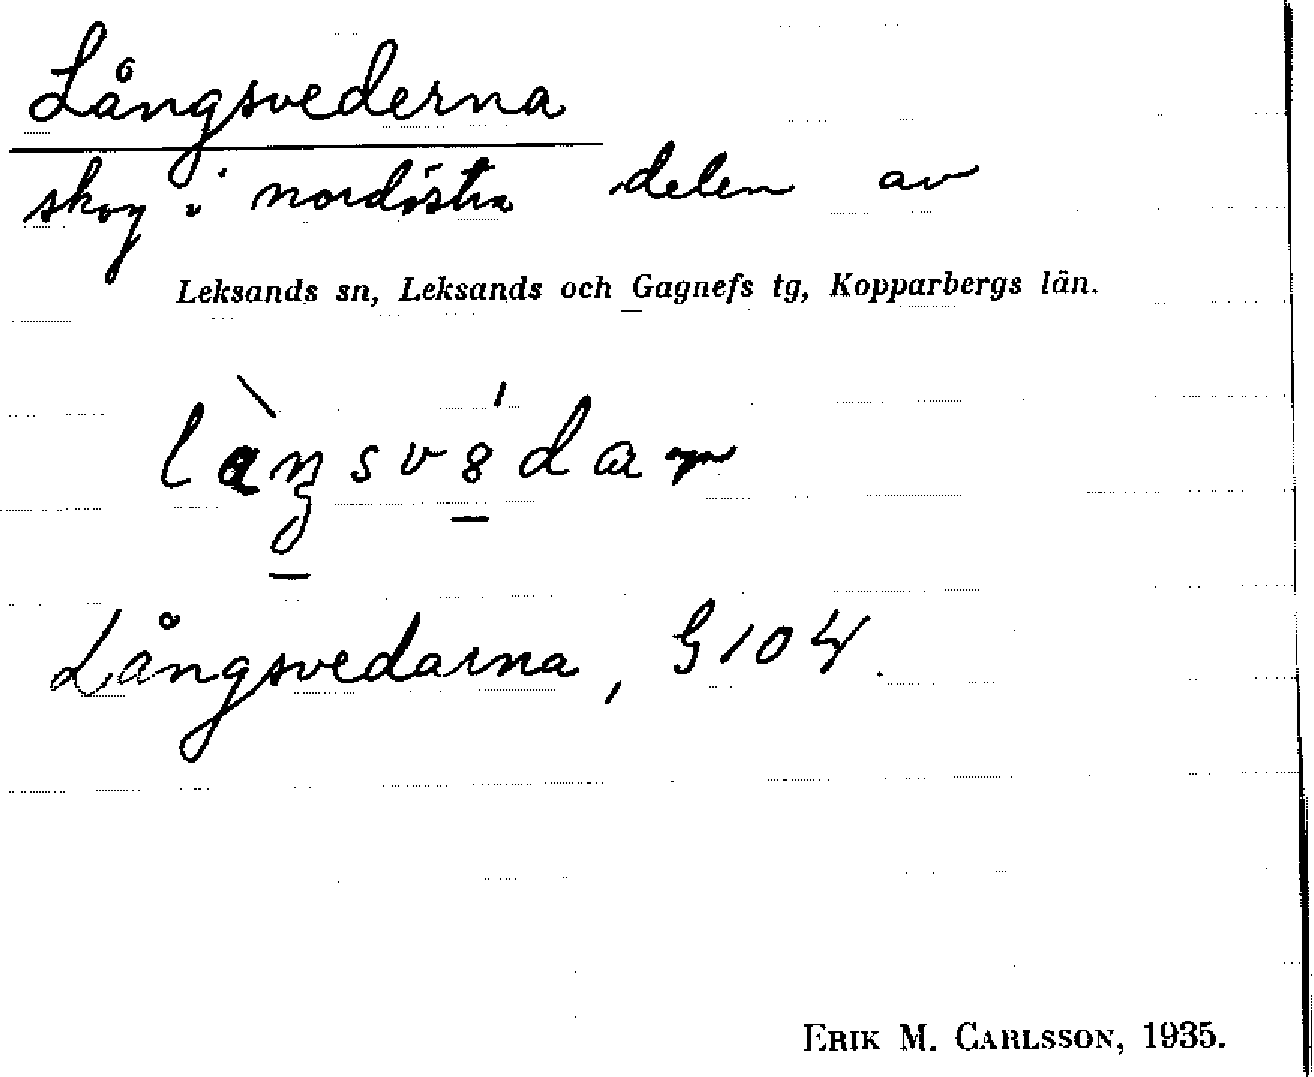 Långsvederna
skog i nordöstra delen av
Leksands sn, Leksands och Gagnefs tg, Kopparbergs län.
Långsvedarna, G 104.
ERIK M. CARLSSON, 1935.